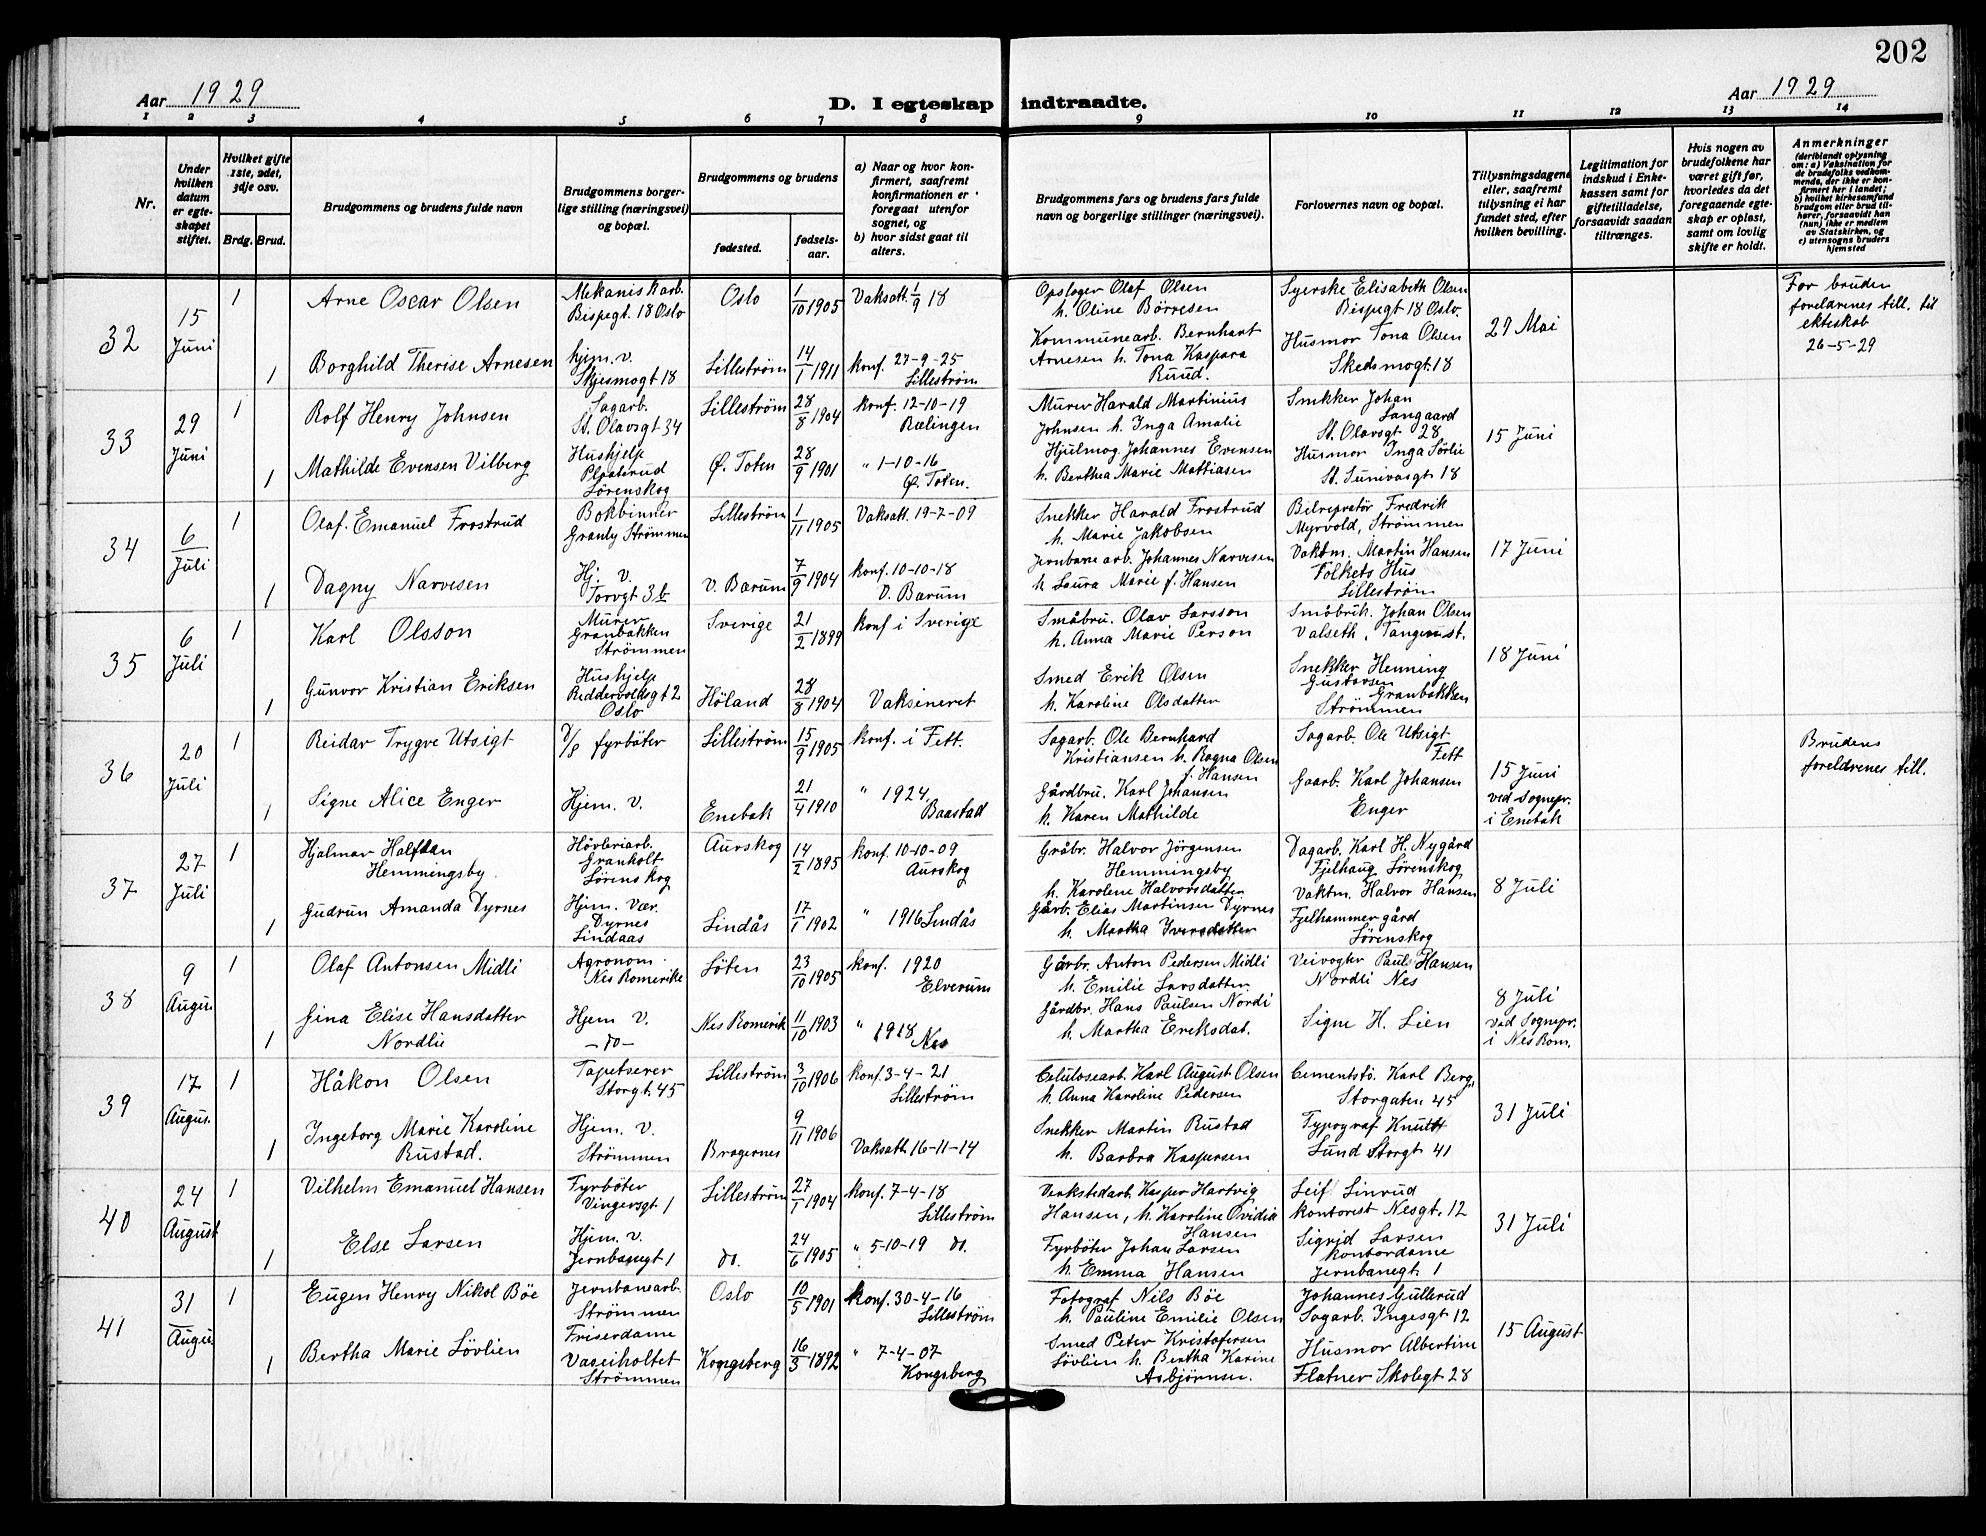 202
Aar 1929
D. I egteskap indtraadte.
Aar 1929
1 2 3 4 5 6 7 8 9 10 11 12 13 14
Nr.
Under hvilken datum er egteskapet stiftet.
Hvilket gifte 1ste, 2det, 3dje osv.
Brdg. Brud.
Brudgommens og brudens fulde navn
Brudgommens borgerlige stilling (næringsvei) og bopæl.
Brudgommens og brudens
fødested.
fødselsaar.
a) Naar og hvor konfirmert, saafremt konfirmationen er foregaat utenfor sognet, og
b) hvor sidst gaat til alters.
Brudgommens fars og brudens fars fulde navn og borgerlige stillinger (næringsvei).
Forlovernes navn og bopæl.
Tillysningsdagene eller, saafremt tillysning ei har fundet sted, efter hvilken bevilling.
Legitimation for indskud i Enkekassen samt for giftetilladelse, forsaavidt saadan tiltrænges.
Hvis nogen av brudefolkene har været gift før, hvorledes da det foregaaende egteskap er opløst, samt om lovlig skifte er holdt.
Anmerkninger
(deriblandt oplysning om: a) Vaksination for de brudefolks vedkommende, der ikke er konfirmert her i landet; b) hvilket kirkesamfund brudgom eller brud tilhører, forsaavidt han (hun) ikke er medlem av Statskirken, og c) utensogns bruders hjemsted
32
15 Juni
1
Arne Oscar Olsen
Mekanisk arb.
Bispegt. 18 Oslo
Oslo
1/10 1905
Vaksatt. 1/9 18
Opslager Olaf Olsen
h. Oline Børresen
Syerske Elisabeth Olsen
Bispegt 18 Oslo.
29 Mai
For bruden
foreldrenes till. til
ekteskab
26-5-29
1
Borghild Therise Arnesen
hjem. v.
Skjesmogt 18
Lilleström
14/1 1911
konf. 27-9-25
Lilleström
Kommunearb. Bernhart
Arnesen h. Tona Kaspara
Ruud.
Husmor Tona Olsen
Skedsmogt. 18
33
29 Juni
1
Rolf Henry Johnsen
Sagarb.
St. Olavsgt 34
Lilleström
28/8 1904
konf. 12-10-19
Rælingen
Murer Harald Martinius
Johnsen h. Inga Amalie
Snekker Johan
Langaard
St. Olavsgt 28
15 Juni
1
Mathilde Evensen Vilberg
Hushjelp
Plosterud
Lörenskog
Ø. Toten
28/9 1901
" 1-10-16
Ø. Toten.
Hjulmag. Johannes Evensen
h. Berthea Marie Mattiasen
Husmor Inga Sørlie
St. Sunivasgt 18
34
6 Juli
1
Olaf. Emanuel Frostrud
Bokbinner
Granly Strömmen
Lilleström
1/11 1905
Vaksatt. 19-7-09
Snekker Harald Frostrud
h. Marie Jakobsen
Bilreprätör Fredrik
Myrvold, Strømmen
17 Juni
1
Dagny Narvesen
Hj. v.
Torvgt 3 b
V. Bærum
7/9 1904
konf. 10-10-18
V. Bærum
Jernbane arb. Johannes Narvesen
h Laura Marie f. Hansen
Vaktm. Martin Hansen
Folkets Hus
Lilleström
35
6 Juli
1
Karl Olsson
Murer
Granbakken
Strömmen
Sverige
21/2 1899
konf i Sverige
Småbru. Olav Larsson
h. Anna Marie Person
Småbrik. Johan Olsen
Valseth, Tangen st.
18 Juni
1
Gunvor Kristian Eriksen
Hushjelp
Riddervoldsgt 2
Oslo
Höland
28/8 1904
Vaksineret
Smed Erik Olsen
h. Karoline Olsdatter
Snekker Henning
Gustavsen
Granbakken
Strömmen
36
20 Juli
1
Reidar Trygve Utsigt
D/S fyrböter
Lilleström
15/9 1905
konf. i Fett.
Sagarb. Ole Bernhard
Kristiansen h. Ragna Olsen
f. Hansen
Sagarb. Ole Utsigt
Fett
15 Juni
ved Sognepr.
i Enebak
Brudens
foreldrenes till.
1
Signe Alice Enger
Hjem. v.
Enebak
21/4 1910
" 1924
Baastad
Gårdbru. Karl Johansen
h. Karen Mathilde
Gaarb. Karl Johansen
Enger
37
27 Juli
1
Hjalmar Halfdan
Hemmingsby.
Hövleriarb.
Granholt
Lörenskog
Aurskog
14/2 1895
konf. 10-10-09
Aurskog
Gråbr. Halvor Jörgensen
Hemmingsby
h. Karoline Halvorsdatter
Dagarb. Karl H. Nygård
Fjelhaug Lørenskog
8 Juli
1
Gudrun Amanda Dyrnes
Hjem. Vær.
Dyrnes
Lindaas
Lindås
17/1 1902
" 1916 Lindås
Gårb. Elias Martinsen Dyrnes
h. Martha Iversdatter
Vaktm. Halvor Hansen
Fjelhammer gård
Lørenskog
38
9 Augus
1
Olaf Antonsen Midli
Agronom.
Nes Romerike
Löten
23/10 1905
konf. 1920
Elverum
Gårbr. Anton Pedersen Midli
h. Emilie Larsdatter
Veivogter Paul Hansen
Nordli Nes
8 Juli
ved Sognepr.
i Nes Rom.
1
Gina Elise Hansdatter
Nordlie
Hjem v.
-do-
Nes Romerik
11/10 1903
" 1918 Nes
Gårdbr. Hans Paulsen Nordi
h. Martha Ereksdat.
Signe H. Lien
39
17 Augus.
1
Håkon Olsen
Tapetserer
Storgt. 45
Lilleström
3/10 1906
konf. 3-4-21
Lilleström
Celulosearb. Karl August Olsen
h. Anna Karoline Pedersen
Cementstö. Karl Berg
Storgaten 45
31 Juli
1
Ingeborg Marie Karoline
Rustad.
Hjem. v.
Strömmen
Bragernes
9/11 1906
Vaksatt. 16-11-14
Snekker Martin Rustad
h. Barbra Kaspersen
Typograf Knutt
Lund Storgt 41
40
24 August
1
Vilhelm Emanuel Hansen
Fyrböter
Vingersgt 1
Lilleström
27/1 1904
konf. 7-4-18
Lilleström
Verkstedarb. Kasper Hartvig
Hansen, h. Karoline Ovidia
Hansen
Leif Linrud
kontorist Nesgt. 12
31 Juli
1
Else Larsen
Hjem. v.
Jernbanegt 1
do.
24/6 1905
" 5-10-19 do.
Fyrböter Johan Larsen
h. Emma Hansen
Sigrid Larsen
kontordame
Jernbanegt. 1
41
31 Augus
1
Eugen Henry Nikol Böe
Jernbanearb.
Strömmen
Oslo
10/5 1901
konf. 30-4-16
Lilleström
Fotograf Nils Böe
h. Pauline Emilie Olsen
Johannes Gullerud
Sagarb. Ingesgt 12
15 August
1
Bertha Marie Lövlien
Friserdame
Vaseiholtet
Strömmen
Kongsberg
16/3 1892
" 7-4-07
Kongsberg
Smed Peter Kristofersen
Lövlien h. Bertha Karine
Asbjørnsen.
Husmor Albertine
Flatner Skolegt 28